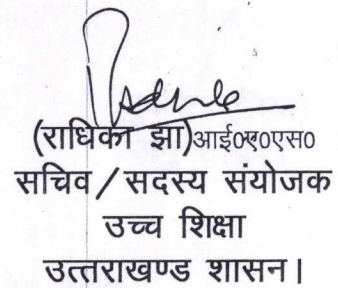 (राधिका झा)आई०ए०एस०
सचिव/सदस्य संयोजक
उच्च शिक्षा
उत्तराखण्ड शासन।